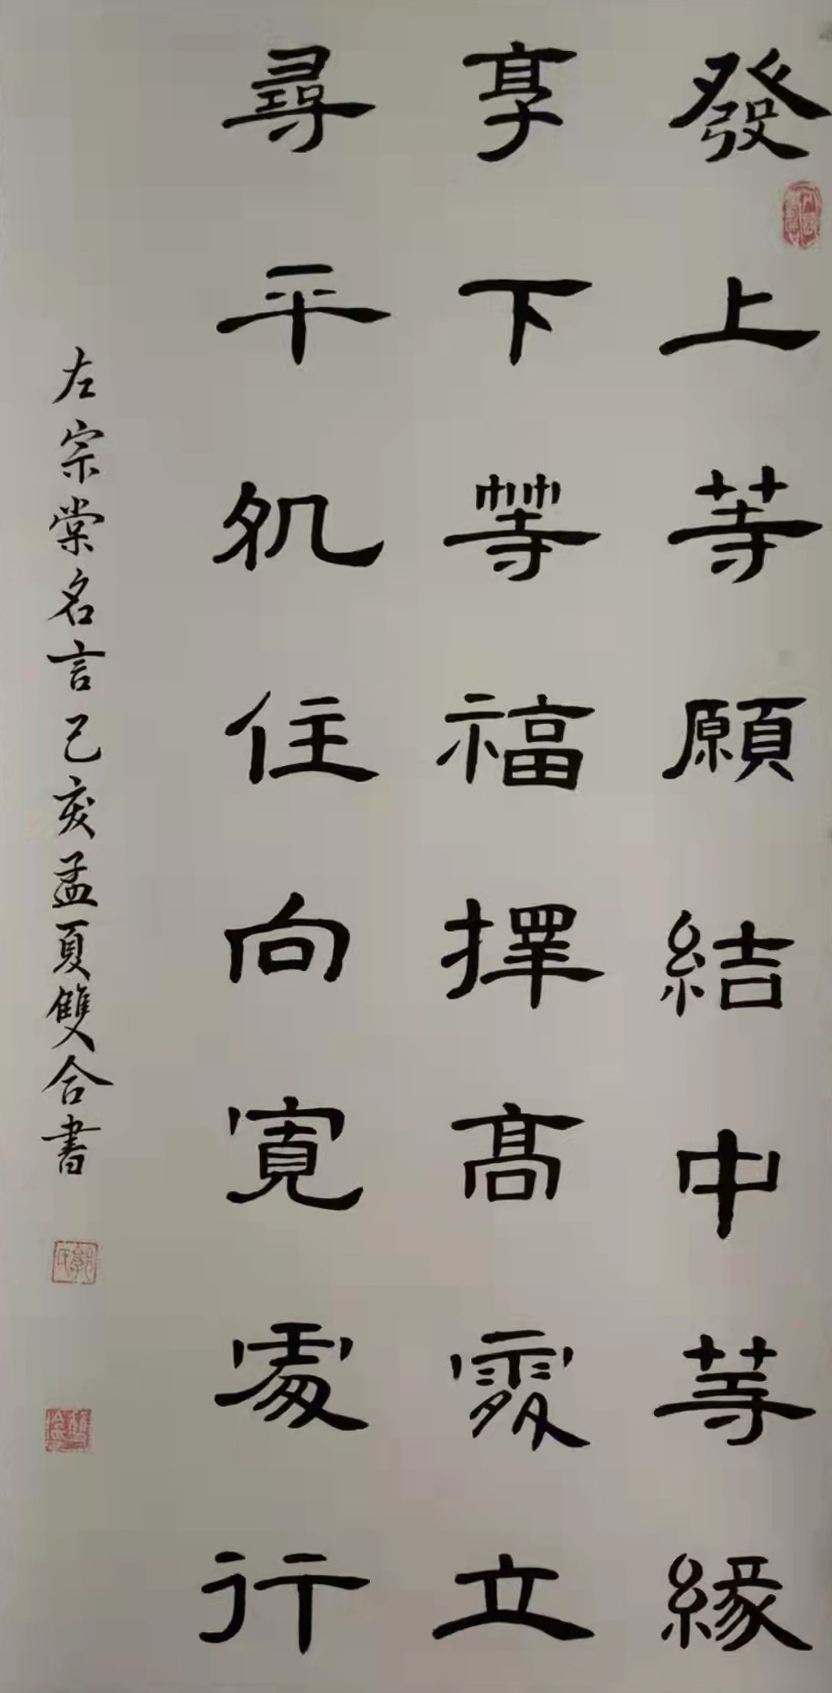 發上等願結中等緣
享下等福擇高處立
尋平処住向寬處行
左宗棠名言己亥孟夏雙合書
郭氏